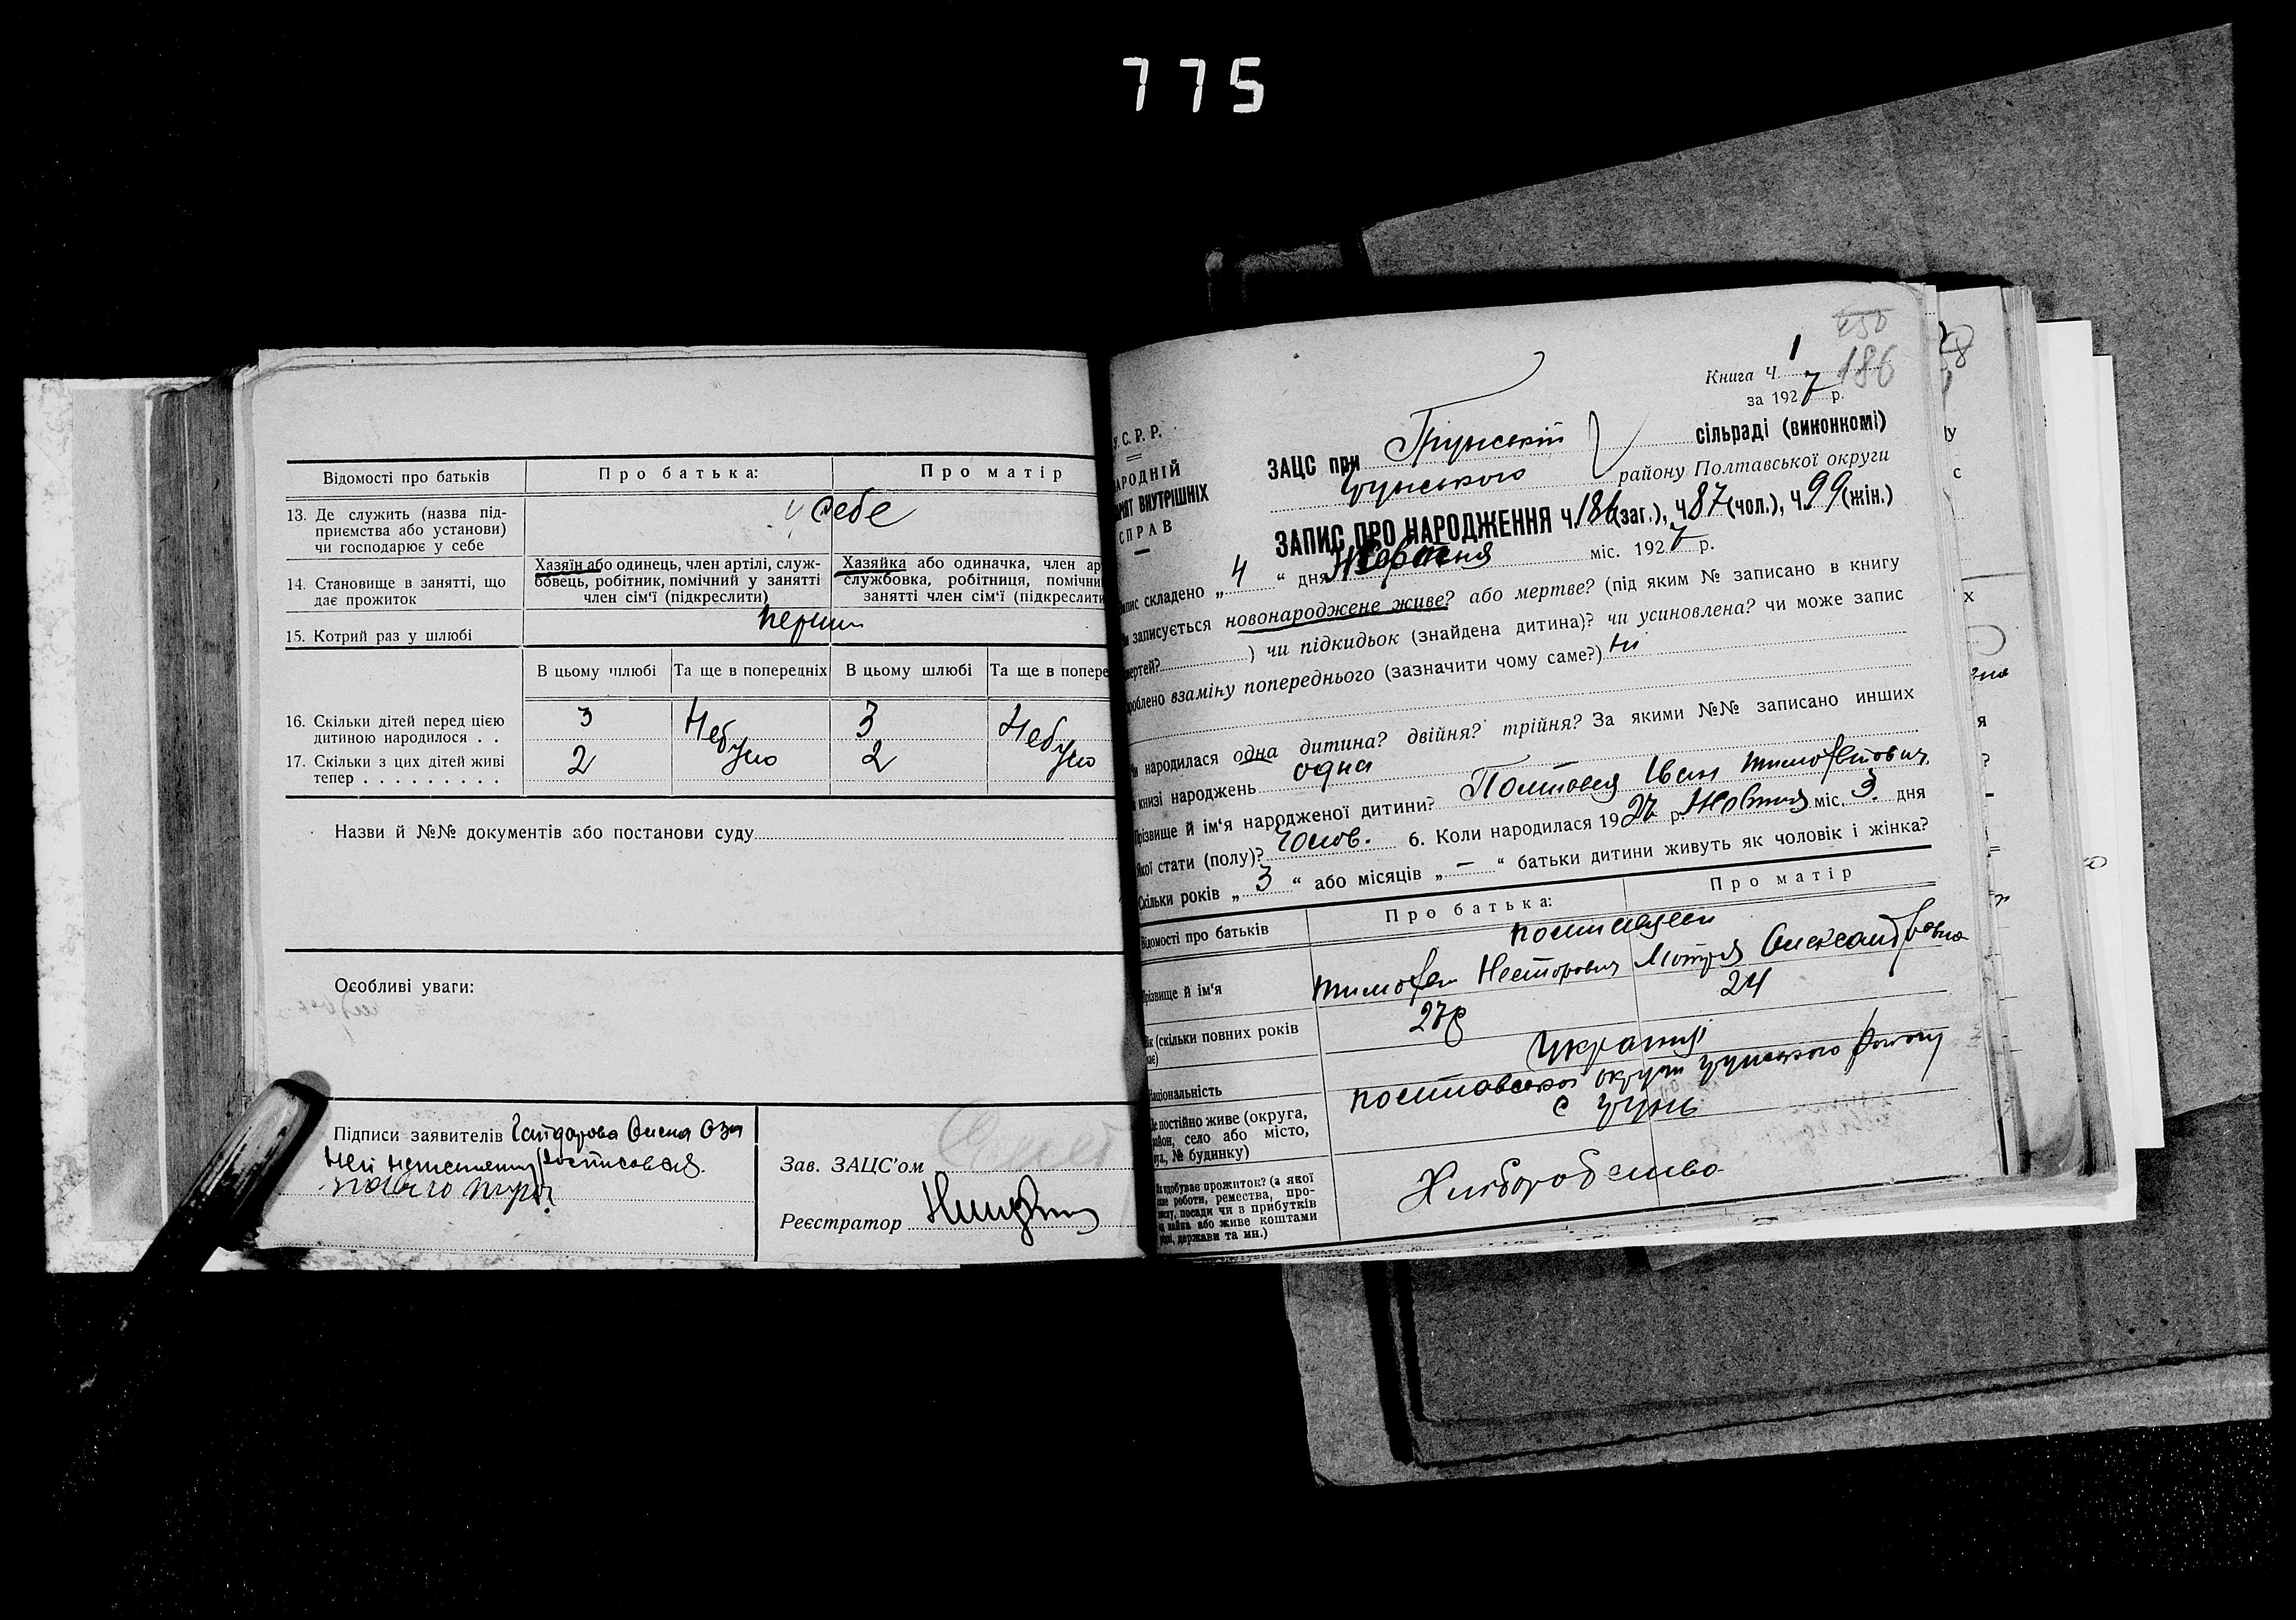 775
Відомості про батьків
Про батька:
Про матір
13. Де служить (назва під-
приємства або установи)
чи господарює у себе
у себе
14. Становище в занятті, що
дає прожиток
Хазяїн або одинець, член артілі, служ-
бовець, робітник, помічний у занятті
член сім'ї (підкреслити)
Хазяйка або одиначка, член ар
службовка, робітниця, помічни
занятті член сім'ї (підкреслити
15. Котрий раз у шлюбі
перший
В цьому шлюбі
Та ще в попередніх
В цьому шлюбі
Та ще в попере
16. Скільки дітей перед цією
дитиною народилося . .
3
Небуло
3
Небуло
17. Скільки з цих дітей живі
тепер . . . . . . . . .
2
2
Назви й №№ документів або постанови суду
Особливі уваги:
Підписи заявителів
Зав. ЗАЦС'ом
Реєстратор
250
186
Книга Ч. 1
за 1927 р.
У. С. Р. Р.
АРОДНІЙ
АРІЯТ ВНУТРІШНІХ
СПРАВ
ЗАЦС при Грунській сільраді (виконкомі)
Грунського району Полтавської округи
ЗАПИС ПРО НАРОДЖЕННЯ Ч. 186 (заг.), Ч. 87 (чол.), Ч. 99 (жін.)
апис складено „ 4 “ дня Жовтня міс. 1927 р.
и записується новонароджене живе? або мертве? (під яким № записано в книгу
мертей? ) чи підкидьок (знайдена дитина)? чи усиновлена? чи може запис
роблено взаміну попереднього (зазначити чому саме?) ні
и народилася одна дитина? двійня? трійня? За якими №№ записано инших
книзі народжень одна
Прізвище й ім'я народженої дитини? Іван Тимофейович
Якої стати (полу)? Чолов. 6. Коли народилася 1927 р. Жовтня міс. 3 дня
Скільки років „ 3 “ або місяців „ — “ батьки дитини живуть як чоловік і жінка?
Відомості про батьків
Про батька:
Про матір
Прізвище й ім'я
Тимофей Несторович
Мотря Олександровна
ік (скільки повних років
має)
27
24
Національність
Україн
Де постійно живе (округа,
район, село або місто,
вул., № будинку)
полтавської округи Грунського району
с Грунь
добуває прожиток? (з якої
роботи, ремества, про-
мислу, посади чи з прибутків
майна або живе коштами
держави та ин.)
Хліборобство